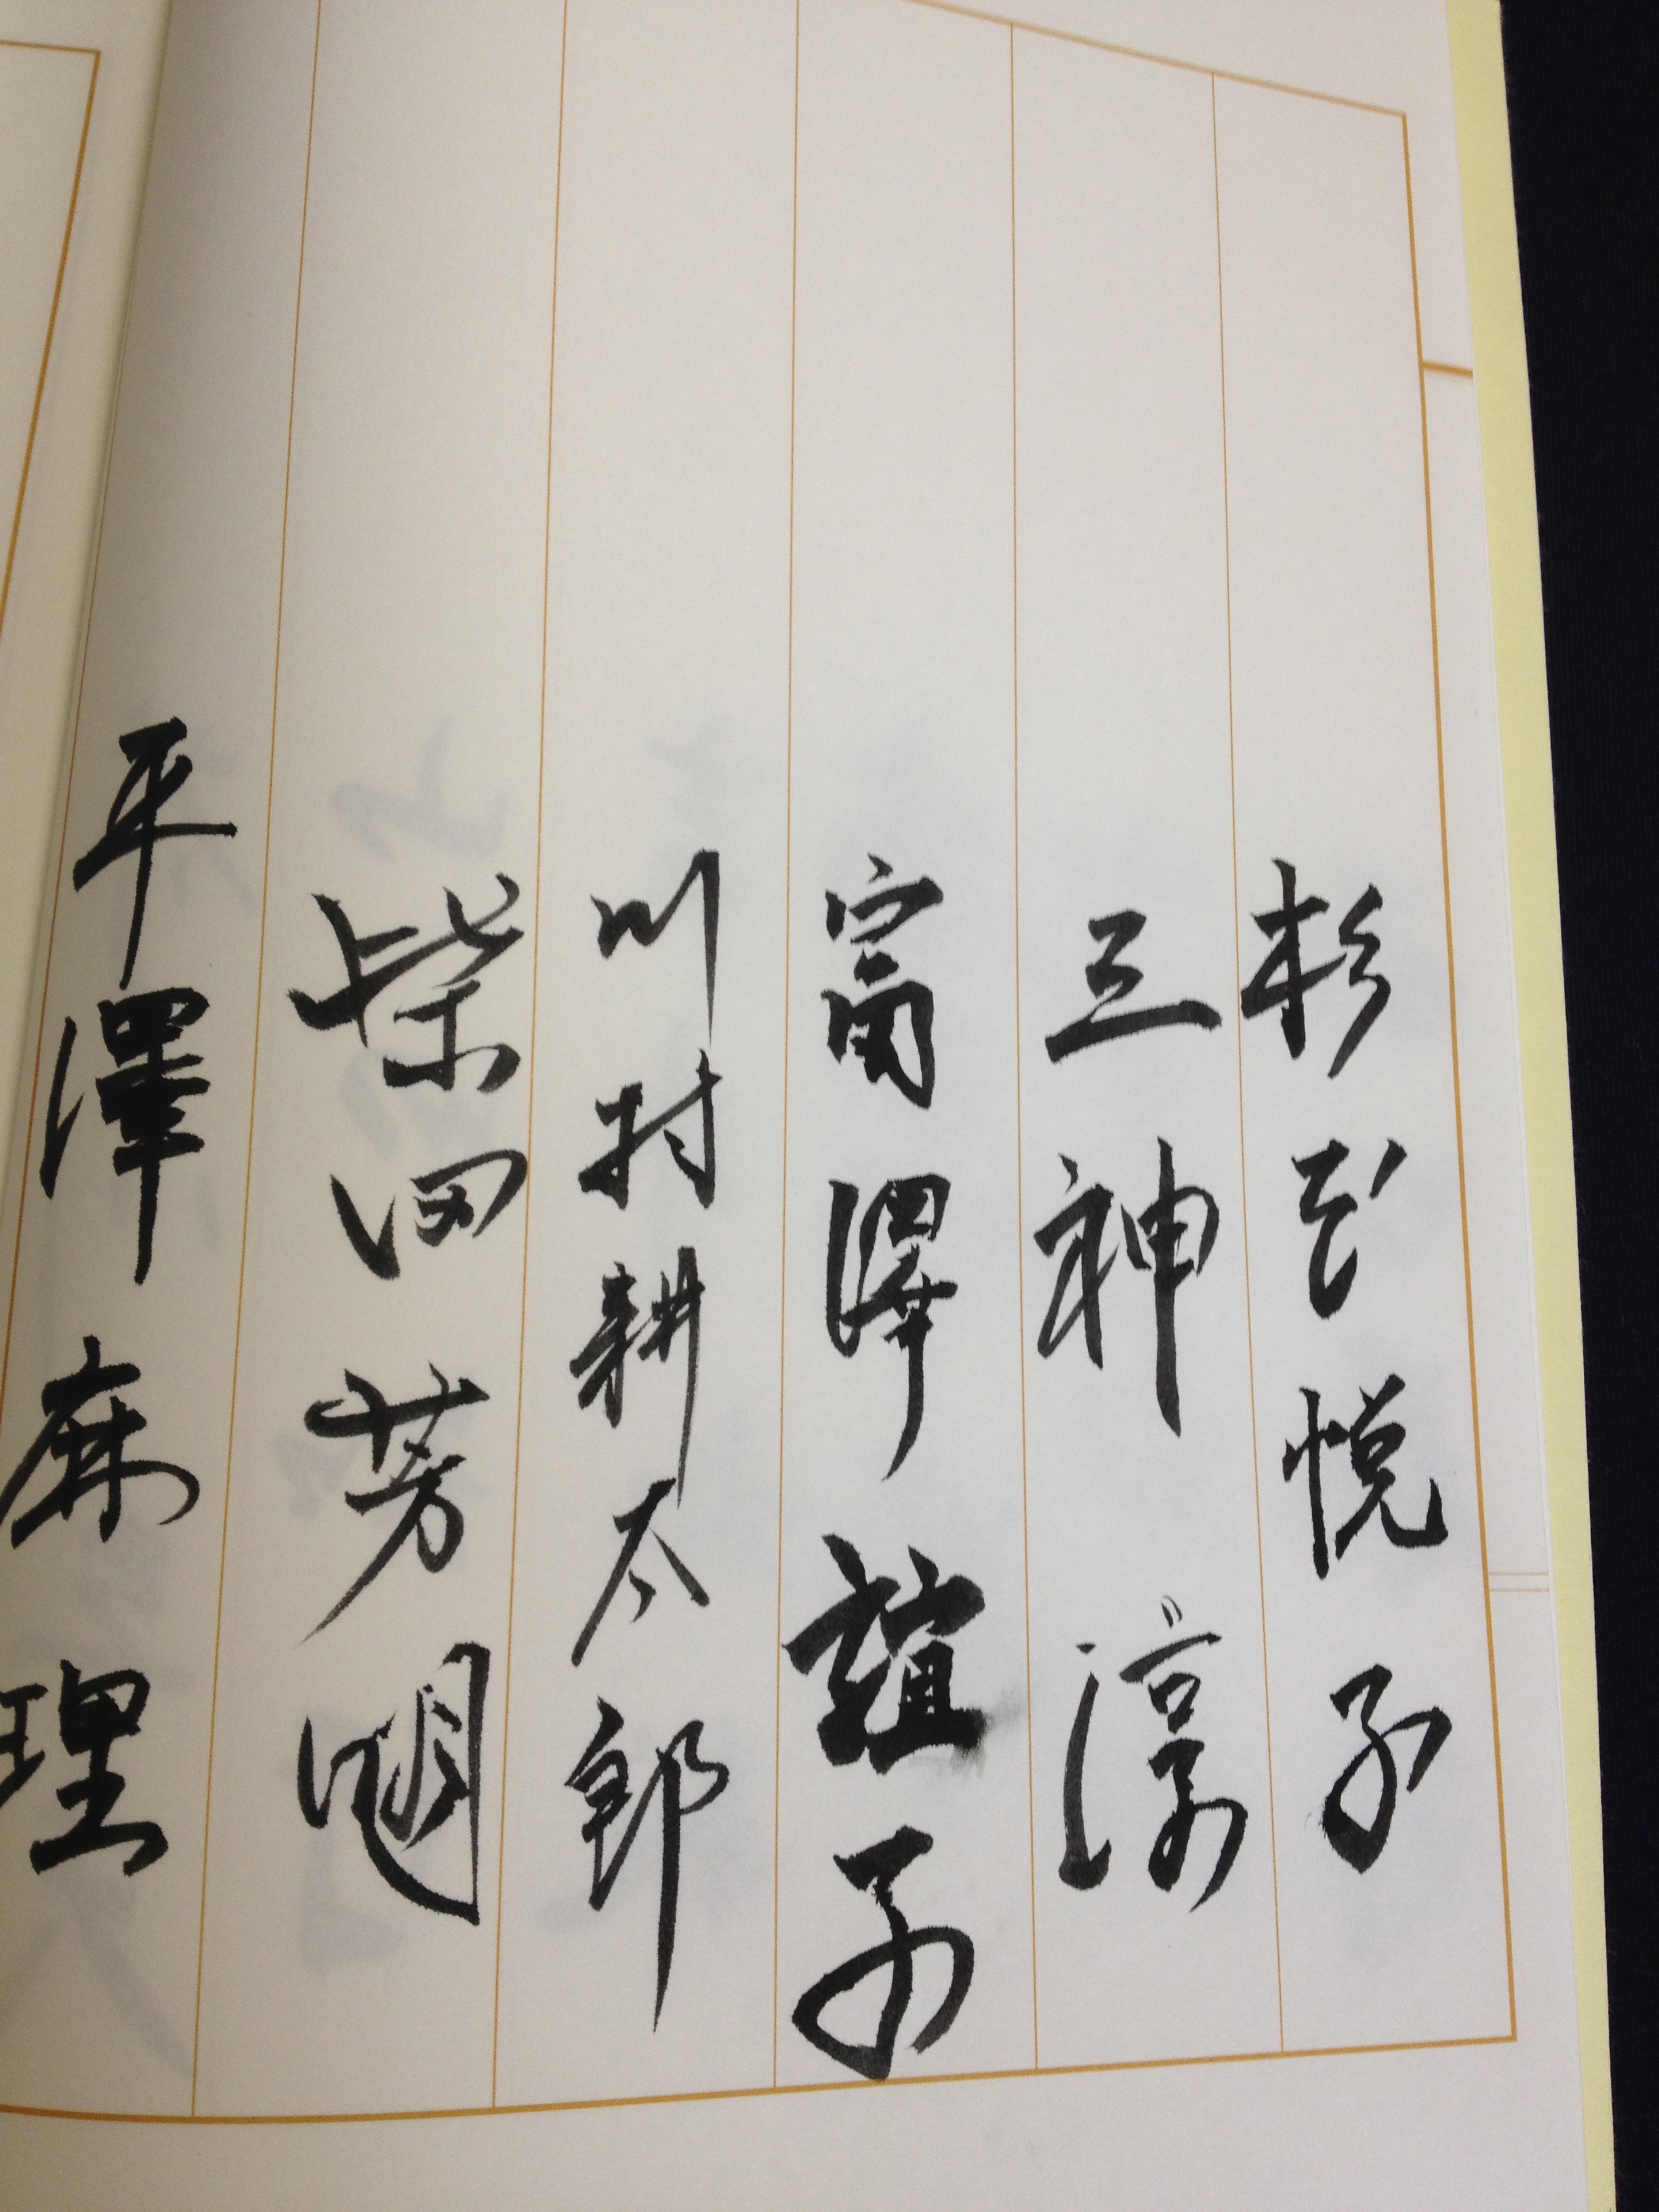 杉本悦子
三神 淳
富澤誼子
川村耕太郎
柴田芳明
平澤麻理